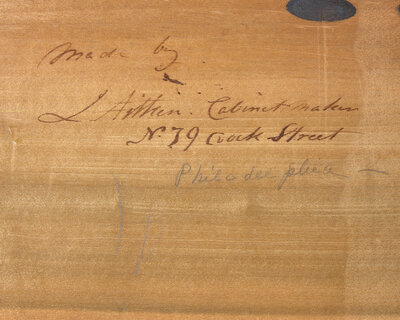 Made by
J Aitken. Cabinet maker
No. 79 Dock Street
Philadelphia